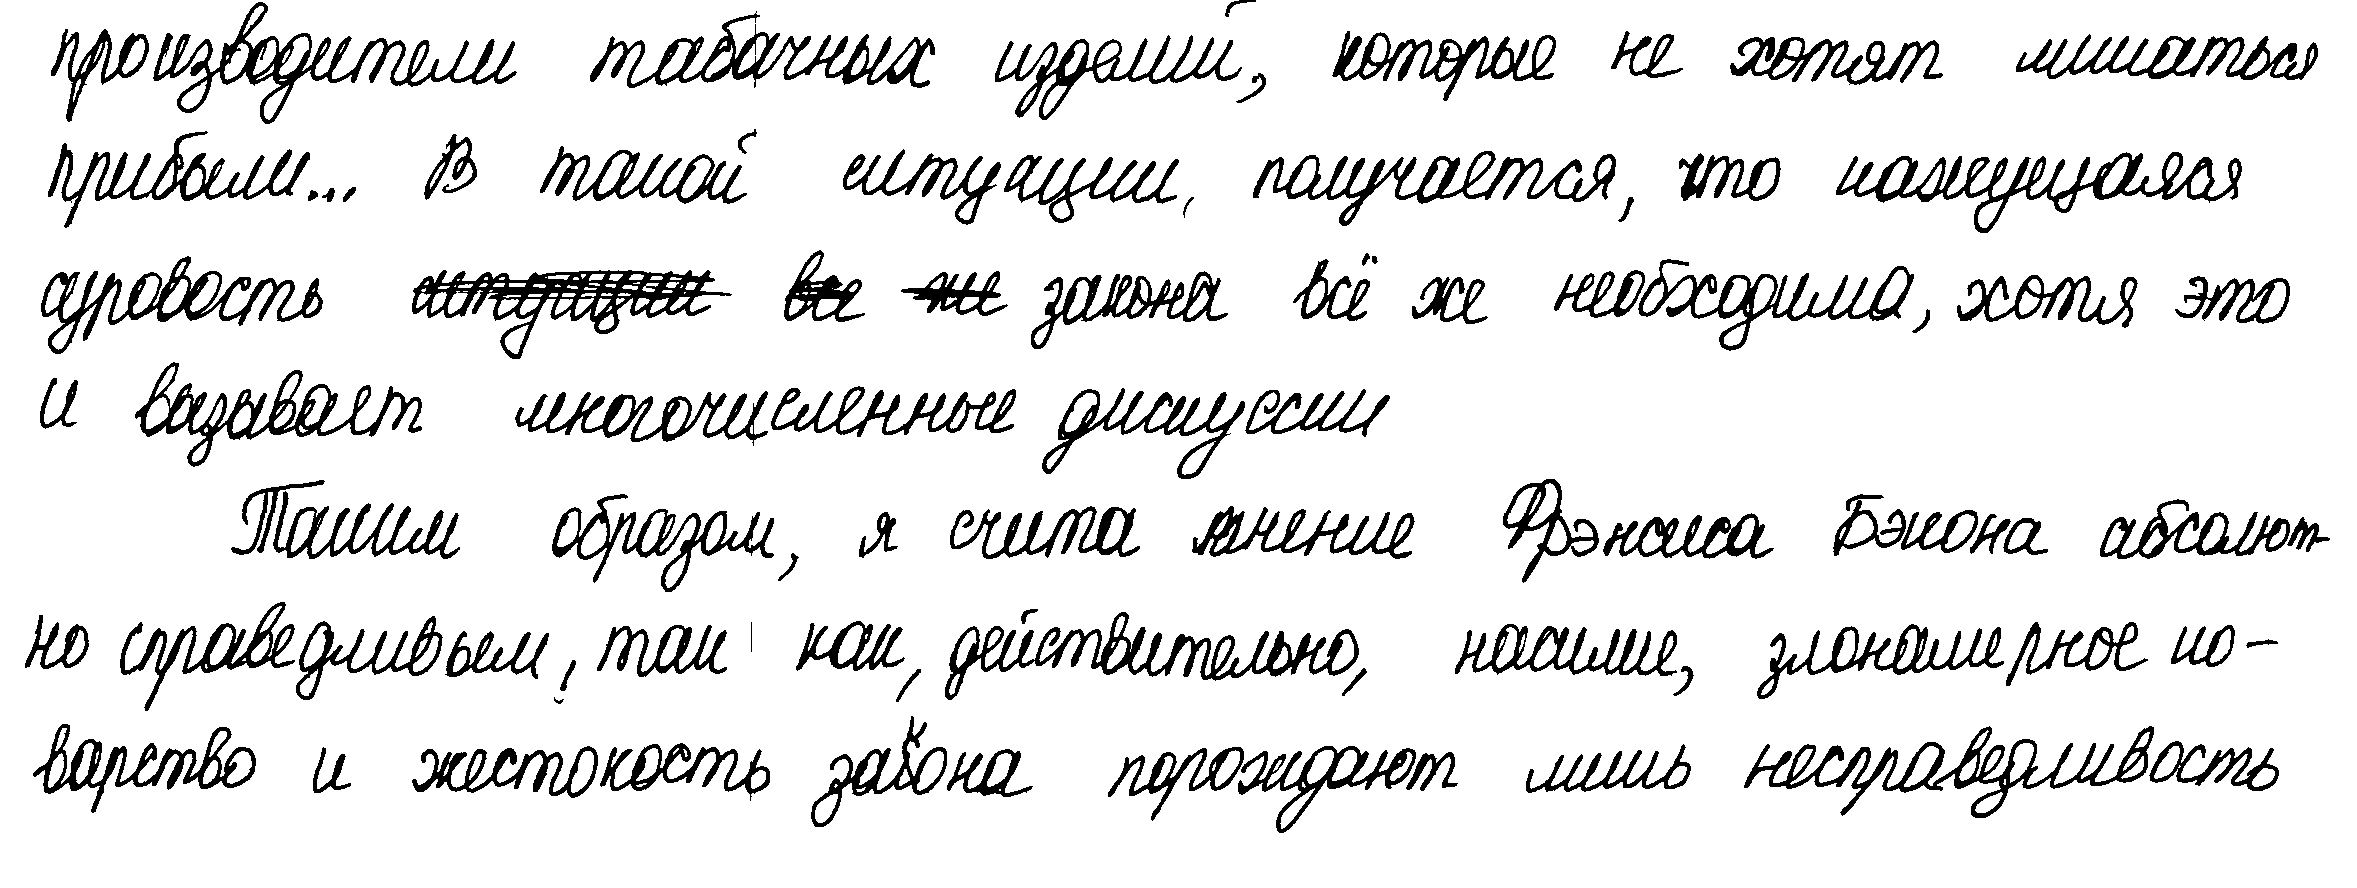 производители табачных изделий, которые не хотят лишаться
прибыли... В такой ситуации, получается, что кажущаяся
суровость ситуации все же закона всё же необходима, хотя это
и вызывает многочисленные дискуссии
Таким образом, я счита мнение Фрэнсиса Бэкона абсолют-
но справедливым, так как, действительно, насилие, злонамерное ко-
варство и жестокость закона порождают лишь несправедливость